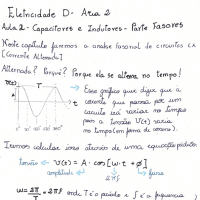 Eletricidade D - Area 2
Aula 2 - Capacitores e Indutores - Parte Fasores
Neste capítulo faremos a análise fasorial de circuitos CA
[Corrente Alternada]
Alternada? Porquê? Porque ela se alterna no tempo!
T
Esse gráfico quer dizer que a
corrente que passa por um
circuito irá variar no tempo
para a tensão V(t) varia
no tempo (em forma de cosseno).
0° 90° 180° 270° 360°
Iremos calcular isso através de uma equação
tensão v(t) = A · cos[ω·t + ø]
amplitude 2πf fase
ω = 2π/T = 2πf onde T é o período e f é a frequência